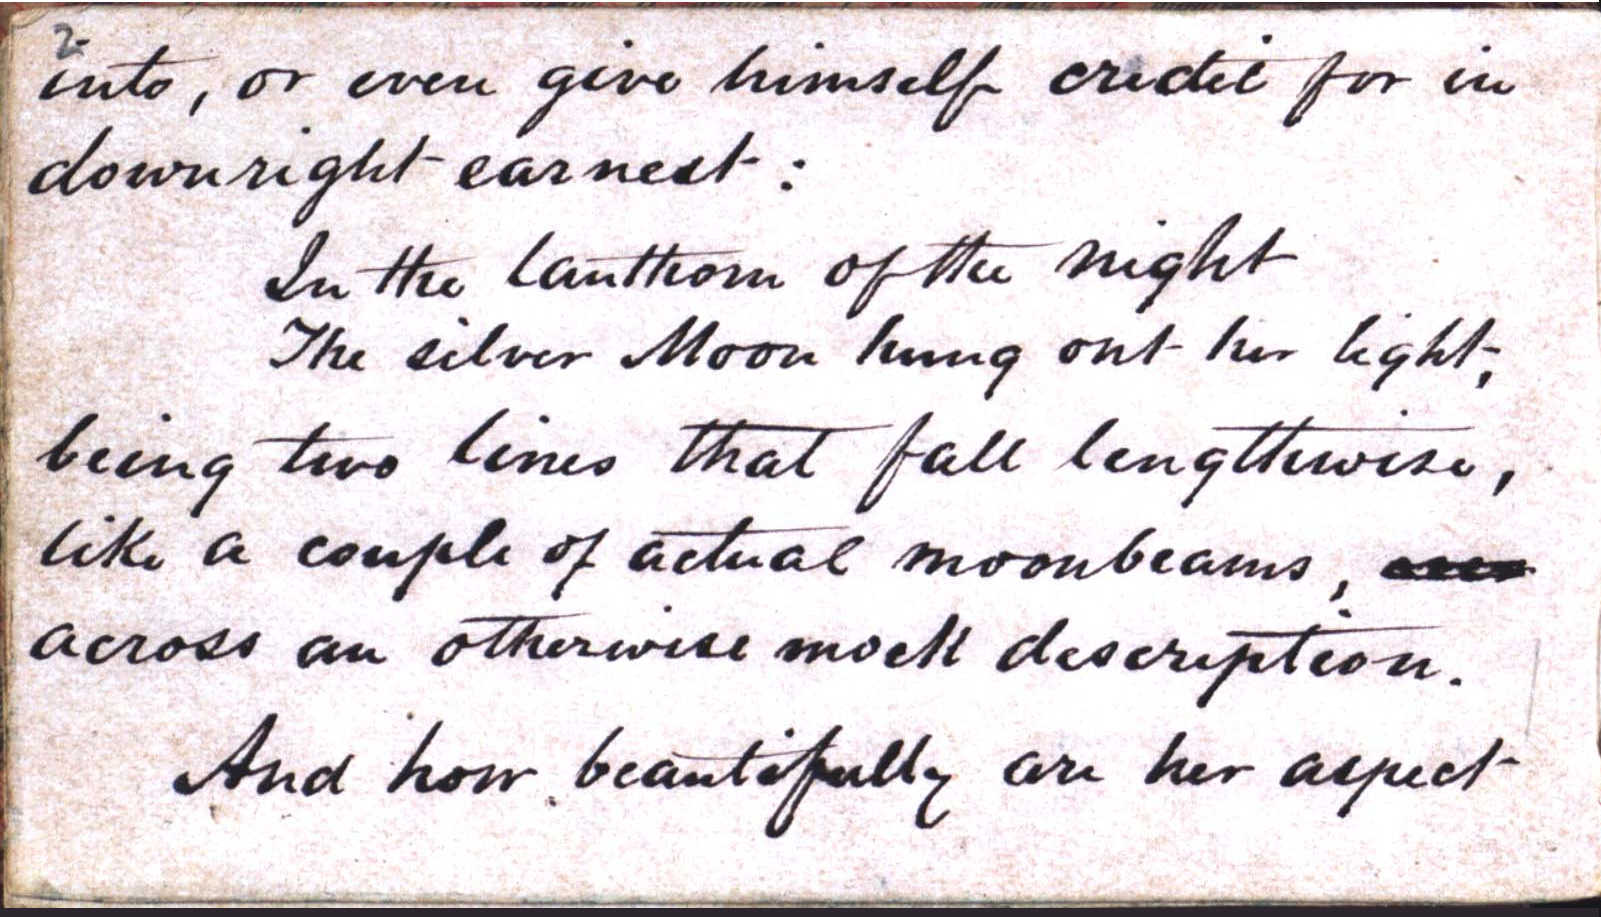 2
into, or even give himself credit for in
downright earnest:
In the lanthorn of the night
The silver Moon hung out her light;
being two lines that fall lengthwise,
like a couple of actual moonbeams,
across an otherwise mock description.
And how beautifully are her aspect